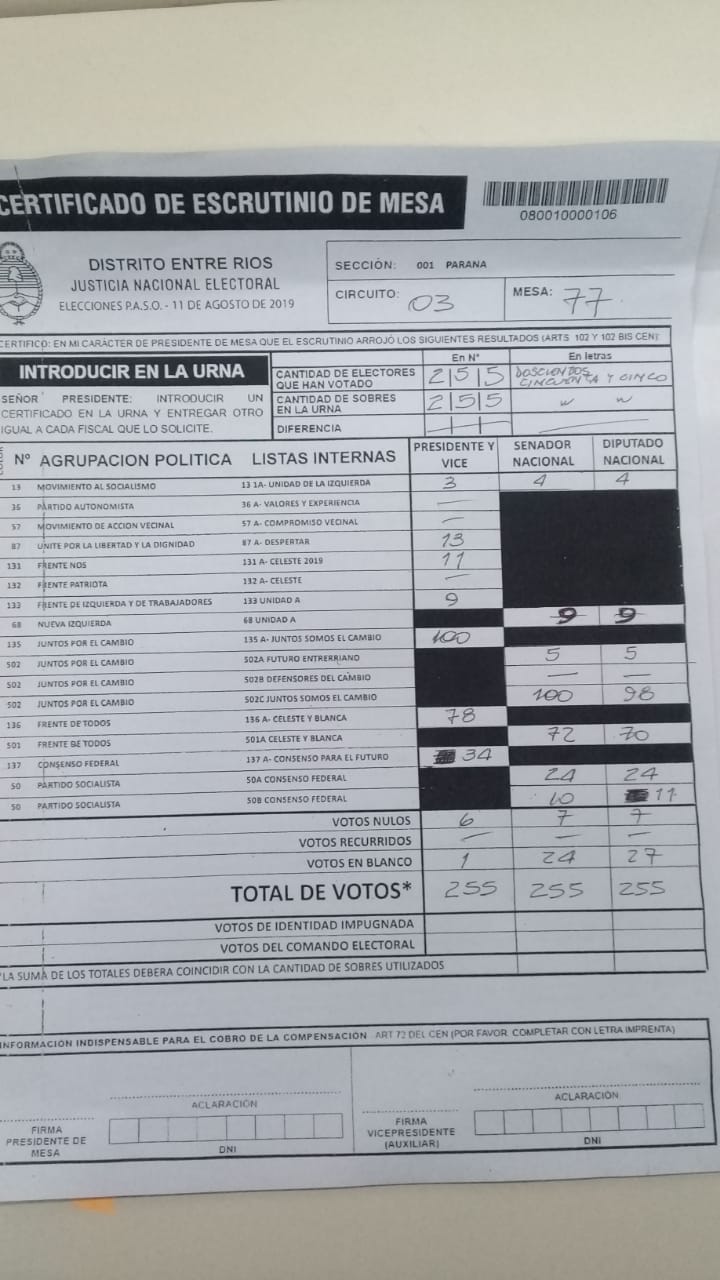 CERTIFICADO DE ESCRUTINIO DE MESA
080010000106
DISTRITO ENTRE RIOS
JUSTICIA NACIONAL ELECTORAL
ELECCIONES P.A.S.O. - 11 DE AGOSTO DE 2019
SECCIÓN: 001 PARANA
CIRCUITO: 03 MESA: 77
CERTIFICO: EN MI CARÁCTER DE PRESIDENTE DE MESA QUE EL ESCRUTINIO ARROJÓ LOS SIGUIENTES RESULTADOS (ARTS 102 Y 102 BIS CEN)
INTRODUCIR EN LA URNA
SEÑOR PRESIDENTE: INTRODUCIR UN
CERTIFICADO EN LA URNA Y ENTREGAR OTRO
IGUAL A CADA FISCAL QUE LO SOLICITE.
En N° En letras
CANTIDAD DE ELECTORES QUE HAN VOTADO 255 DOSCIENTOS CINCUENTA Y CINCO
CANTIDAD DE SOBRES EN LA URNA 255 " "
DIFERENCIA — — —
N° AGRUPACION POLITICA LISTAS INTERNAS PRESIDENTE Y VICE SENADOR NACIONAL DIPUTADO NACIONAL
13 MOVIMIENTO AL SOCIALISMO 13 1A- UNIDAD DE LA IZQUIERDA 3 4 4
36 PARTIDO AUTONOMISTA 36 A- VALORES Y EXPERIENCIA —
57 MOVIMIENTO DE ACCION VECINAL 57 A- COMPROMISO VECINAL —
87 UNITE POR LA LIBERTAD Y LA DIGNIDAD 87 A- DESPERTAR 13
131 FRENTE NOS 131 A- CELESTE 2019 11
132 FRENTE PATRIOTA 132 A- CELESTE —
133 FRENTE DE IZQUIERDA Y DE TRABAJADORES 133 UNIDAD A 9
68 NUEVA IZQUIERDA 68 UNIDAD A 9 9
135 JUNTOS POR EL CAMBIO 135 A- JUNTOS SOMOS EL CAMBIO 100
502 JUNTOS POR EL CAMBIO 502A FUTURO ENTRERRIANO 5 5
502 JUNTOS POR EL CAMBIO 502B DEFENSORES DEL CAMBIO — —
502 JUNTOS POR EL CAMBIO 502C JUNTOS SOMOS EL CAMBIO 100 98
136 FRENTE DE TODOS 136 A- CELESTE Y BLANCA 78
501 FRENTE DE TODOS 501A CELESTE Y BLANCA 72 70
137 CONSENSO FEDERAL 137 A- CONSENSO PARA EL FUTURO 34
50 PARTIDO SOCIALISTA 50A CONSENSO FEDERAL 24 24
50 PARTIDO SOCIALISTA 50B CONSENSO FEDERAL 10 11
VOTOS NULOS 6 7 7
VOTOS RECURRIDOS — — —
VOTOS EN BLANCO 1 24 27
TOTAL DE VOTOS* 255 255 255
VOTOS DE IDENTIDAD IMPUGNADA
VOTOS DEL COMANDO ELECTORAL
*LA SUMA DE LOS TOTALES DEBERA COINCIDIR CON LA CANTIDAD DE SOBRES UTILIZADOS
INFORMACIÓN INDISPENSABLE PARA EL COBRO DE LA COMPENSACIÓN ART 72 DEL CEN (POR FAVOR COMPLETAR CON LETRA IMPRENTA)
ACLARACIÓN ACLARACIÓN
FIRMA PRESIDENTE DE MESA DNI
FIRMA VICEPRESIDENTE (AUXILIAR) DNI